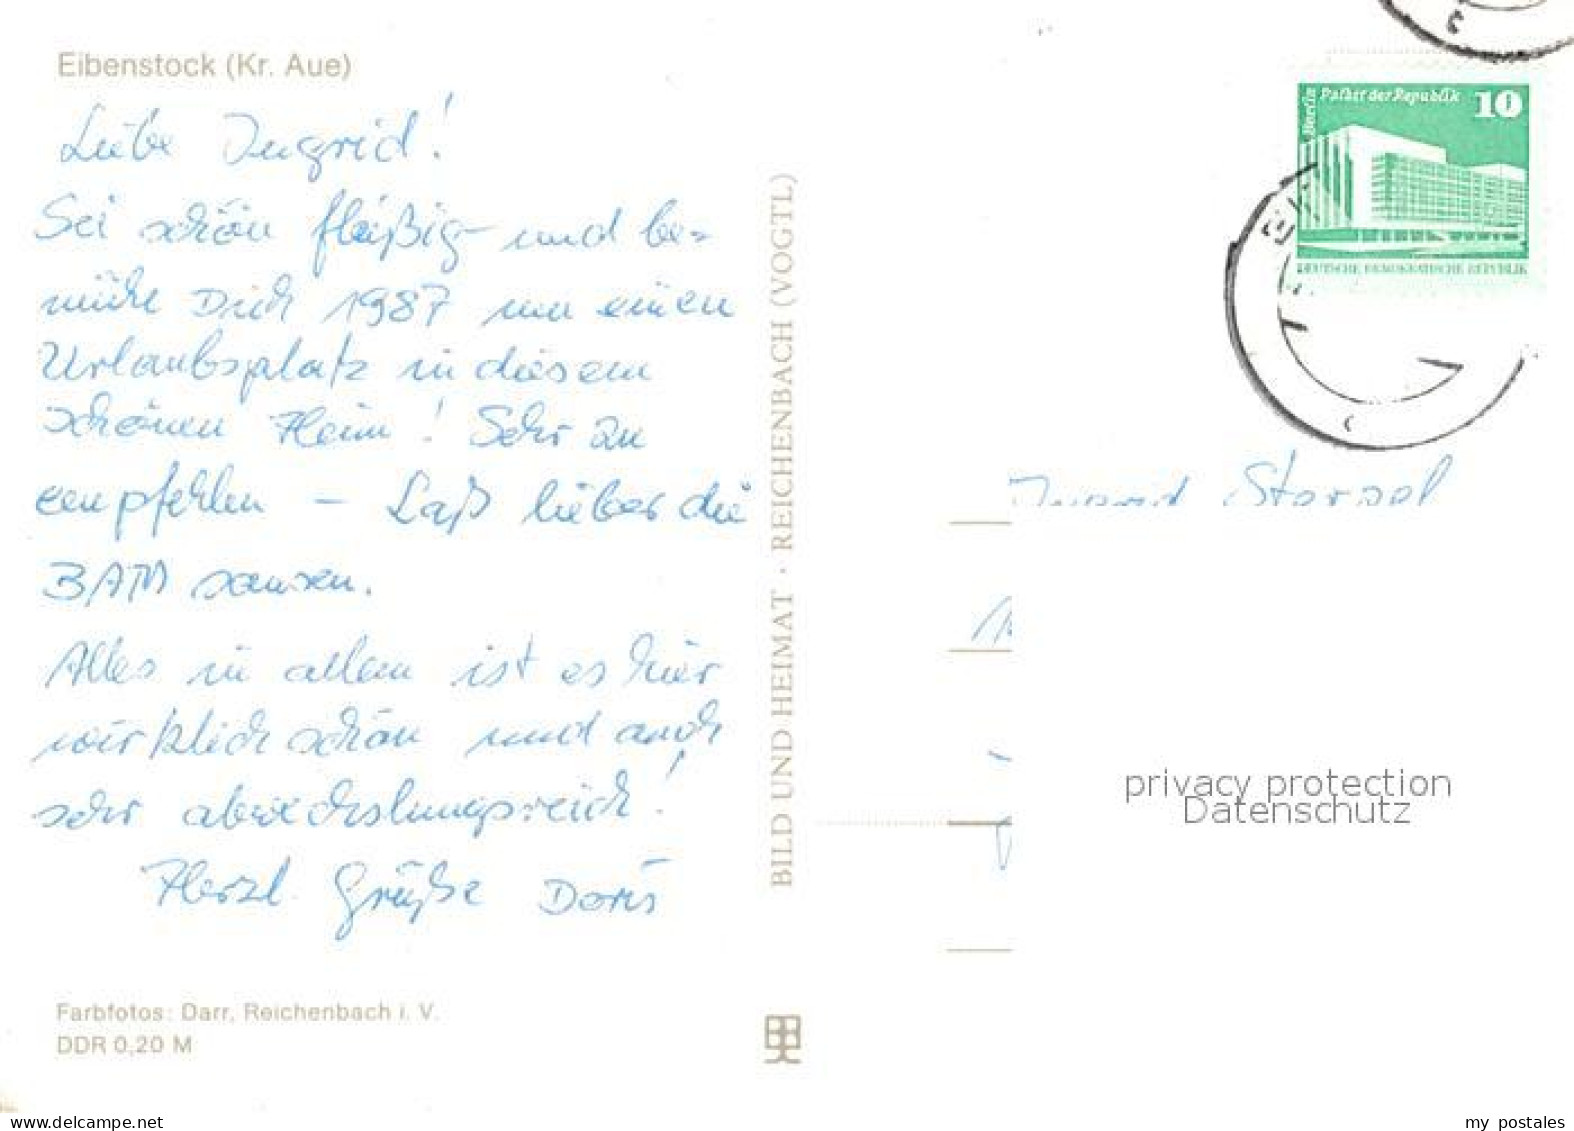 Eibenstock (Kr. Aue)
Liebe Ingrid!
Sei schön fleißig und be=
mühe Dich 1987 um einen
Urlaubsplatz in diesem
schönen Heim! Sehr zu
empfehlen – Laß lieber die
BAM sausen.
Alles in allem ist es hier
wirklich schön und auch
sehr abwechslungsreich!
Herzl. Grüße Doris
Farbfotos: Darr, Reichenbach i. V.
DDR 0,20 M
BILD UND HEIMAT · REICHENBACH (VOGTL)
Berlin
Palast der Republik
10
DEUTSCHE DEMOKRATISCHE REPUBLIK
Ingrid
privacy protection
Datenschutz
www.delcampe.net
my_postales